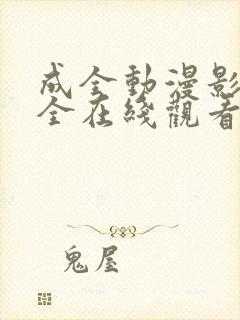 成全動漫影
全在綫觀看
鬼屋